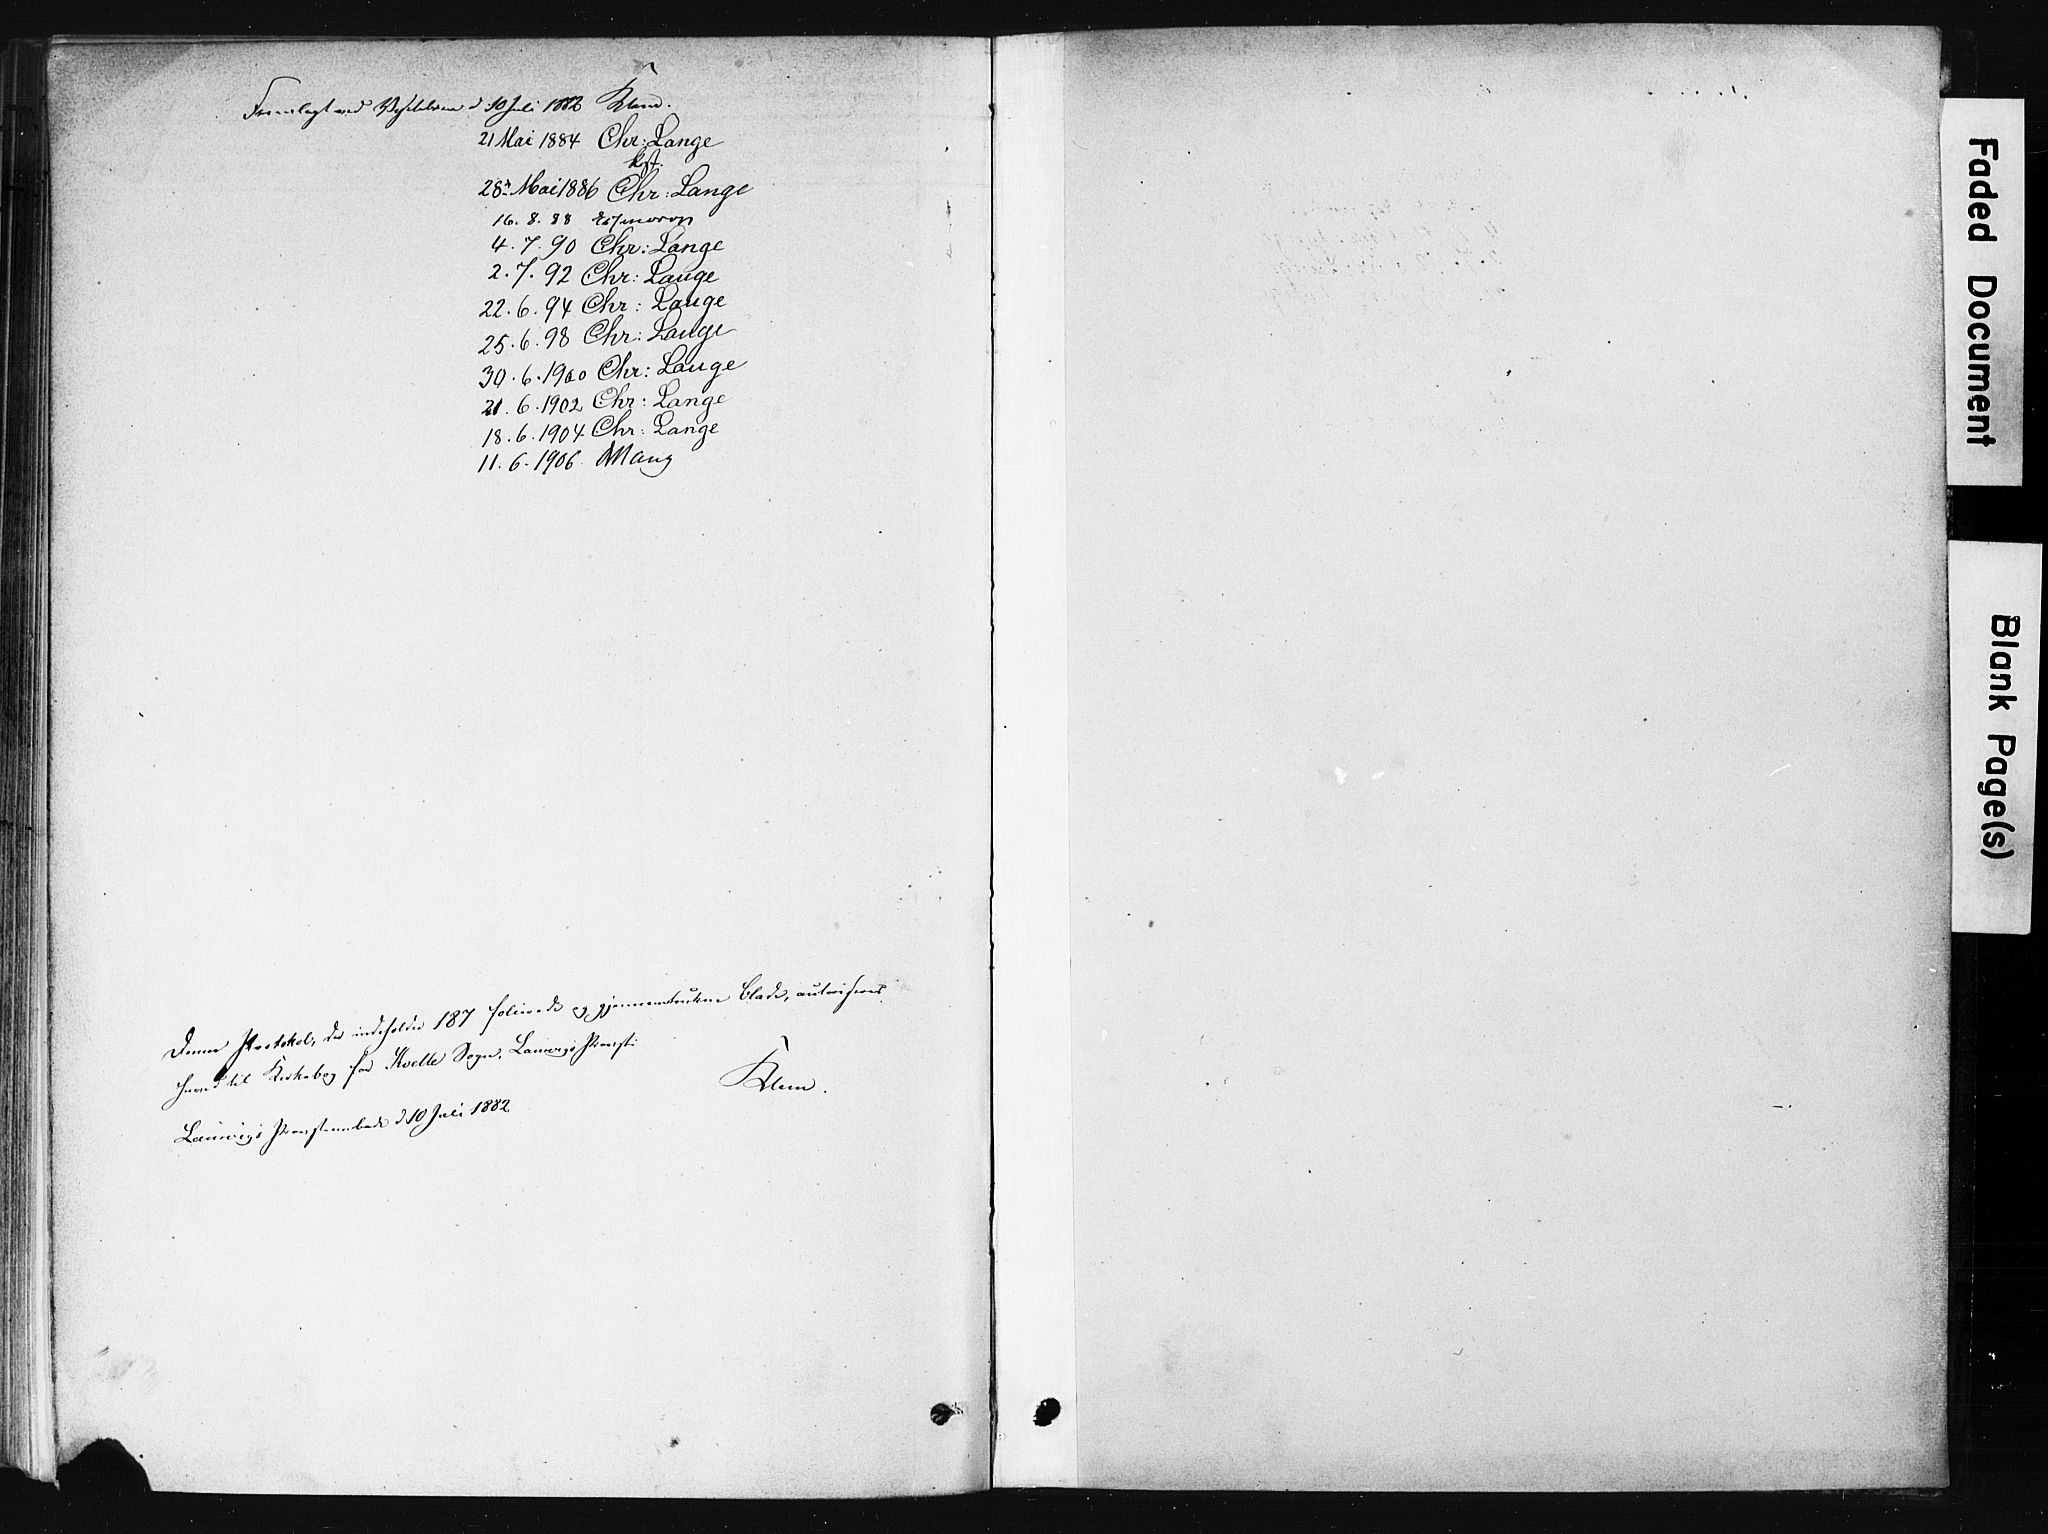 Fremlagt ved Visitatsen d 10 Juli 1882 Klem.
21 Mai 1884 Chr: Lange
kst.
28de Mai 1886 Chr: Lange
16. 8. 88
4. 7. 90 Chr: Lange
2. 7. 92 Chr: Lange
22. 6. 94 Chr: Lange
25. 6. 98 Chr: Lange
30. 6. 1900 Chr: Lange
21. 6. 1902 Chr: Lange
18. 6. 1904 Chr: Lange
11. 6. 1906.
Denne Protokol, der indeholder 187 folierede og gjennemtrukne Blade, autoriseres
herved til Kirkebog for Kvelle Sogn, Laurvigs Provsti
Klem.
Laurvigs Provstiembede d 10 Juli 1882
Faded Document
Blank Page(s)